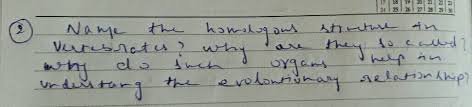 17 18 19 20 21 22 23
24 25 26 27 28 29 30
② Name the homologous structure in
vertebrates? why are they so called?
why do such organs help in
understang the evolutionary relationship?